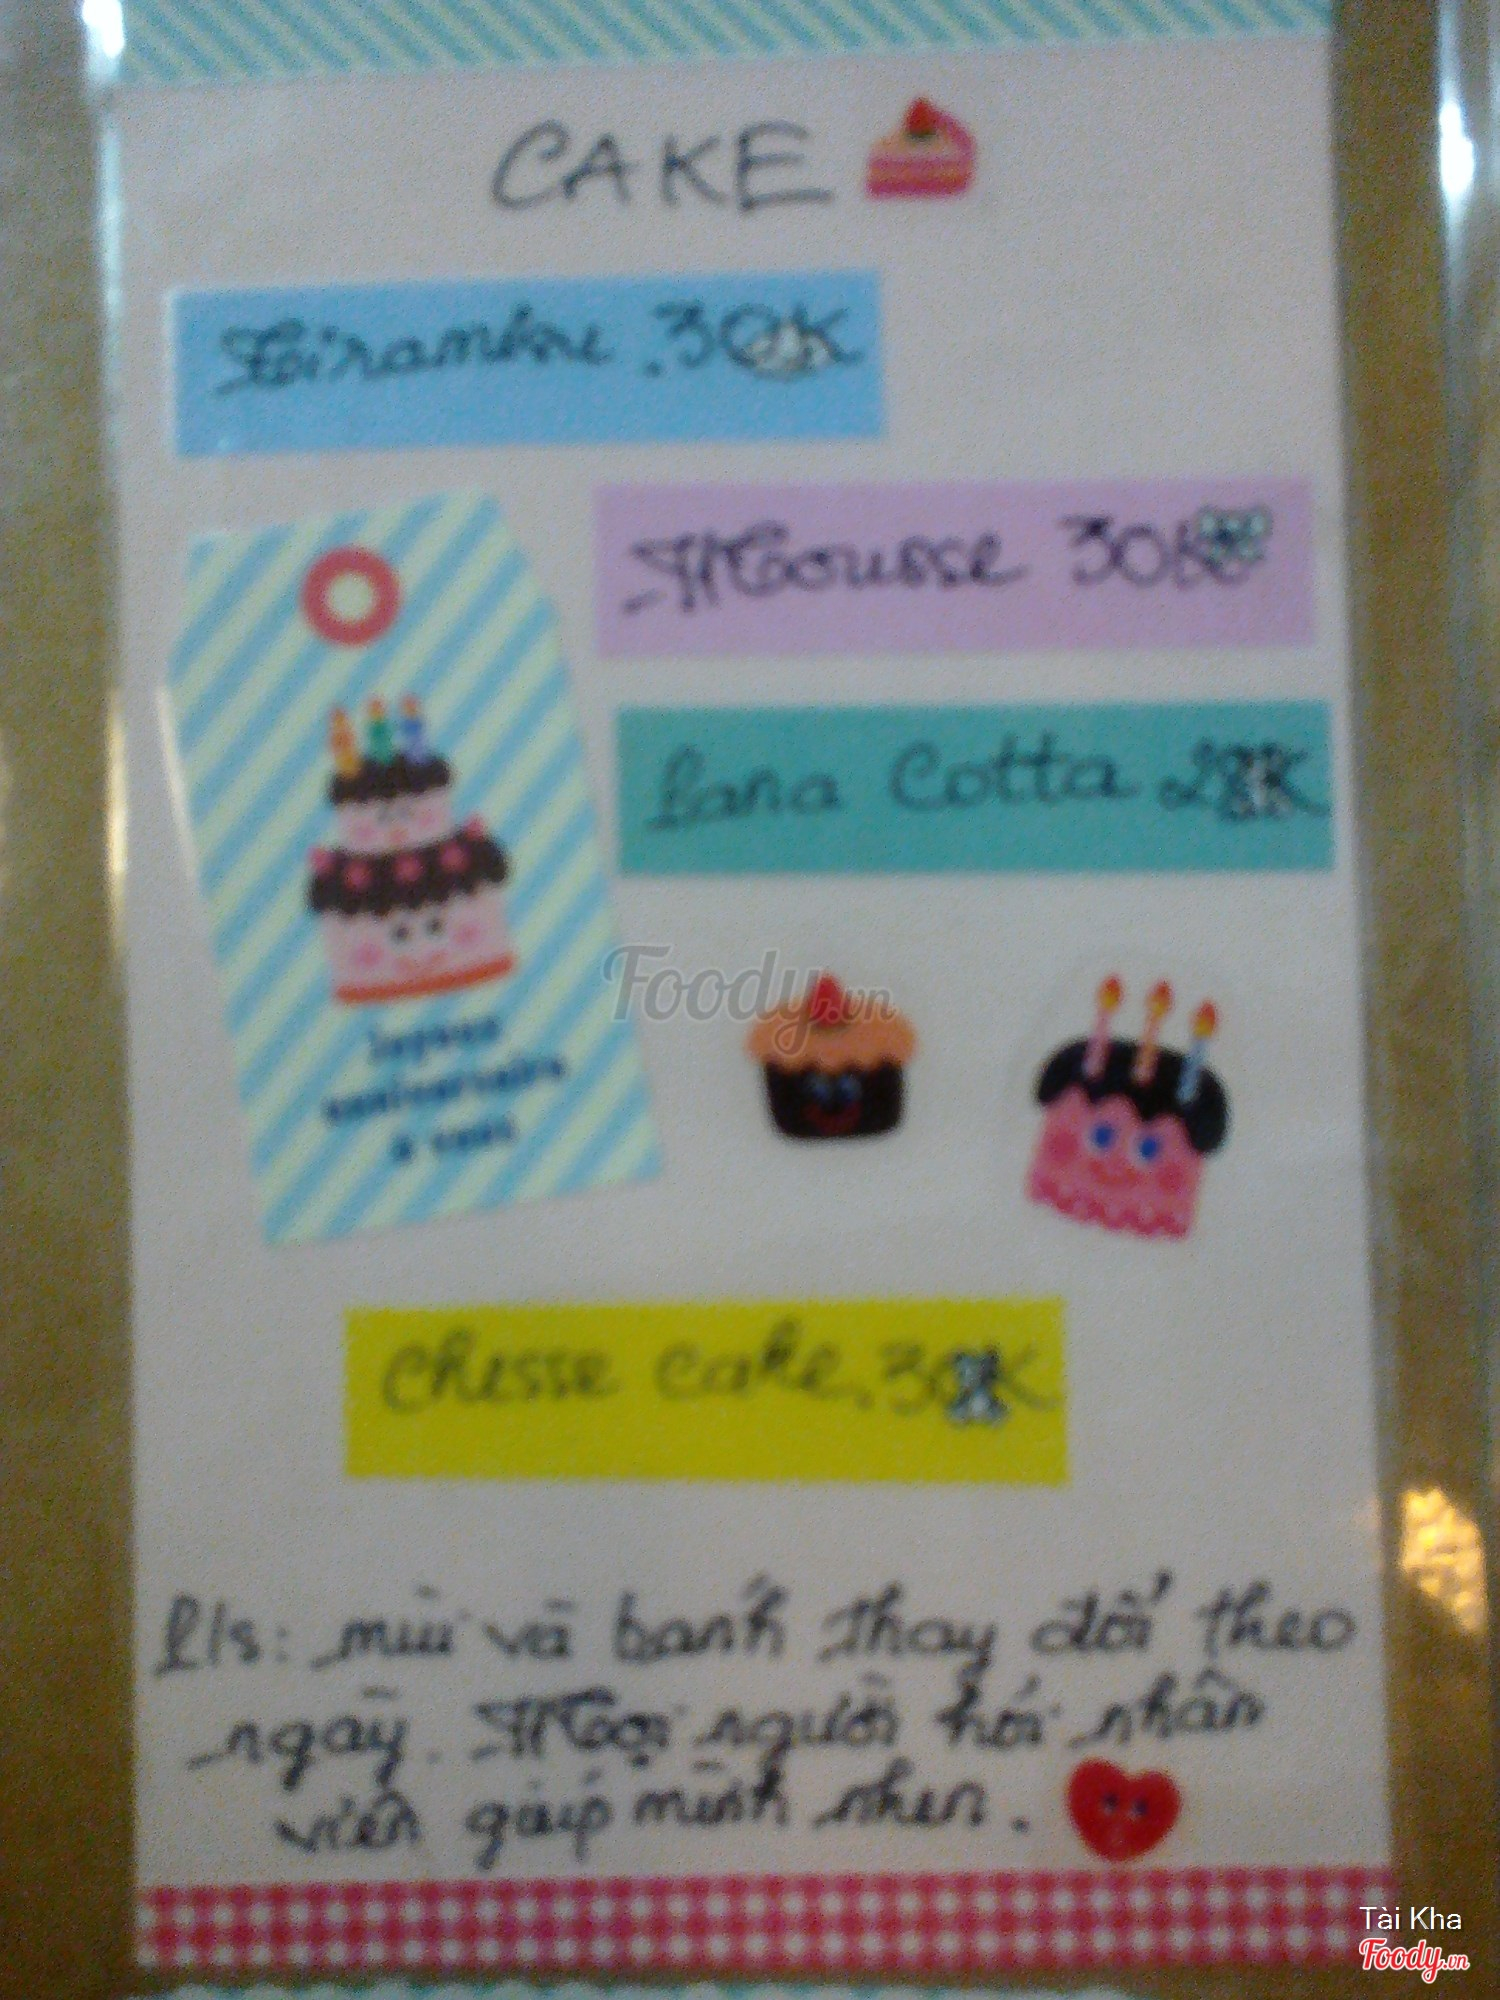 CAKE
Teiramisu .30K
Mousse 30K
Pana Cotta 28K
Joyeux
anniversaire
à vous
Foody.vn
Chesse cake. 30K
P/s: mùi và bánh thay đổi theo
ngày. Mọi người hỏi nhân
viên giúp mình nhen.
Tài Kha
Foody.vn